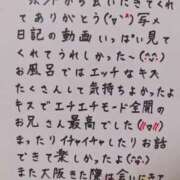 ホントから会いにきてくれ
て ありがとう(๑'ڡ'๑) 写メ
日記の動画 いっぱい見て
くれてうれしかった~(^◇^)
お風呂では エッチなキス
たくさんして 気持ちよかったよ
キスで エチエチモード全開の
お兄さん最高でした(〃▽〃)
まったりイチャイチャしたりお話
できて楽しかったよ(^◇^)
また大阪きた際は会いにきて